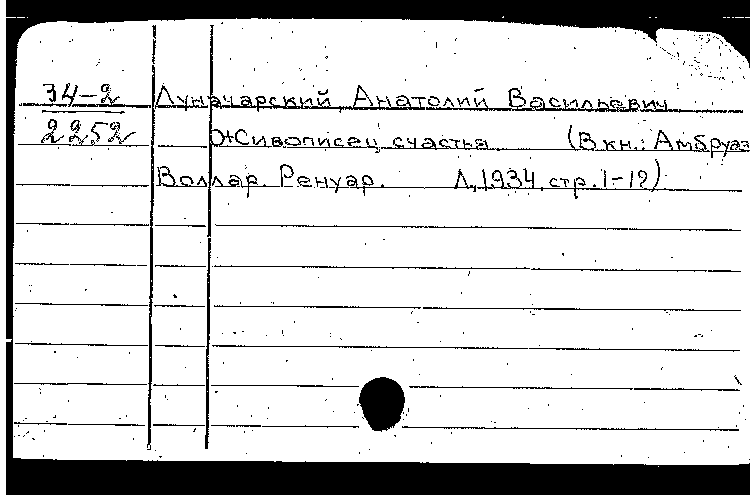 34-2 Луначарский, Анатолий Васильевич
2252 Живописец счастья (В кн.: Амбруаз
Воллар. Ренуар. Л., 1934, стр. 1-12)